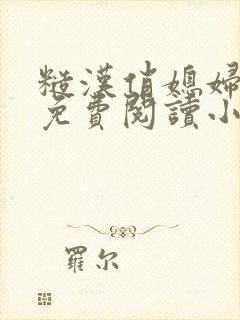 糙漢俏媳婦
免費閱讀小
羅尔